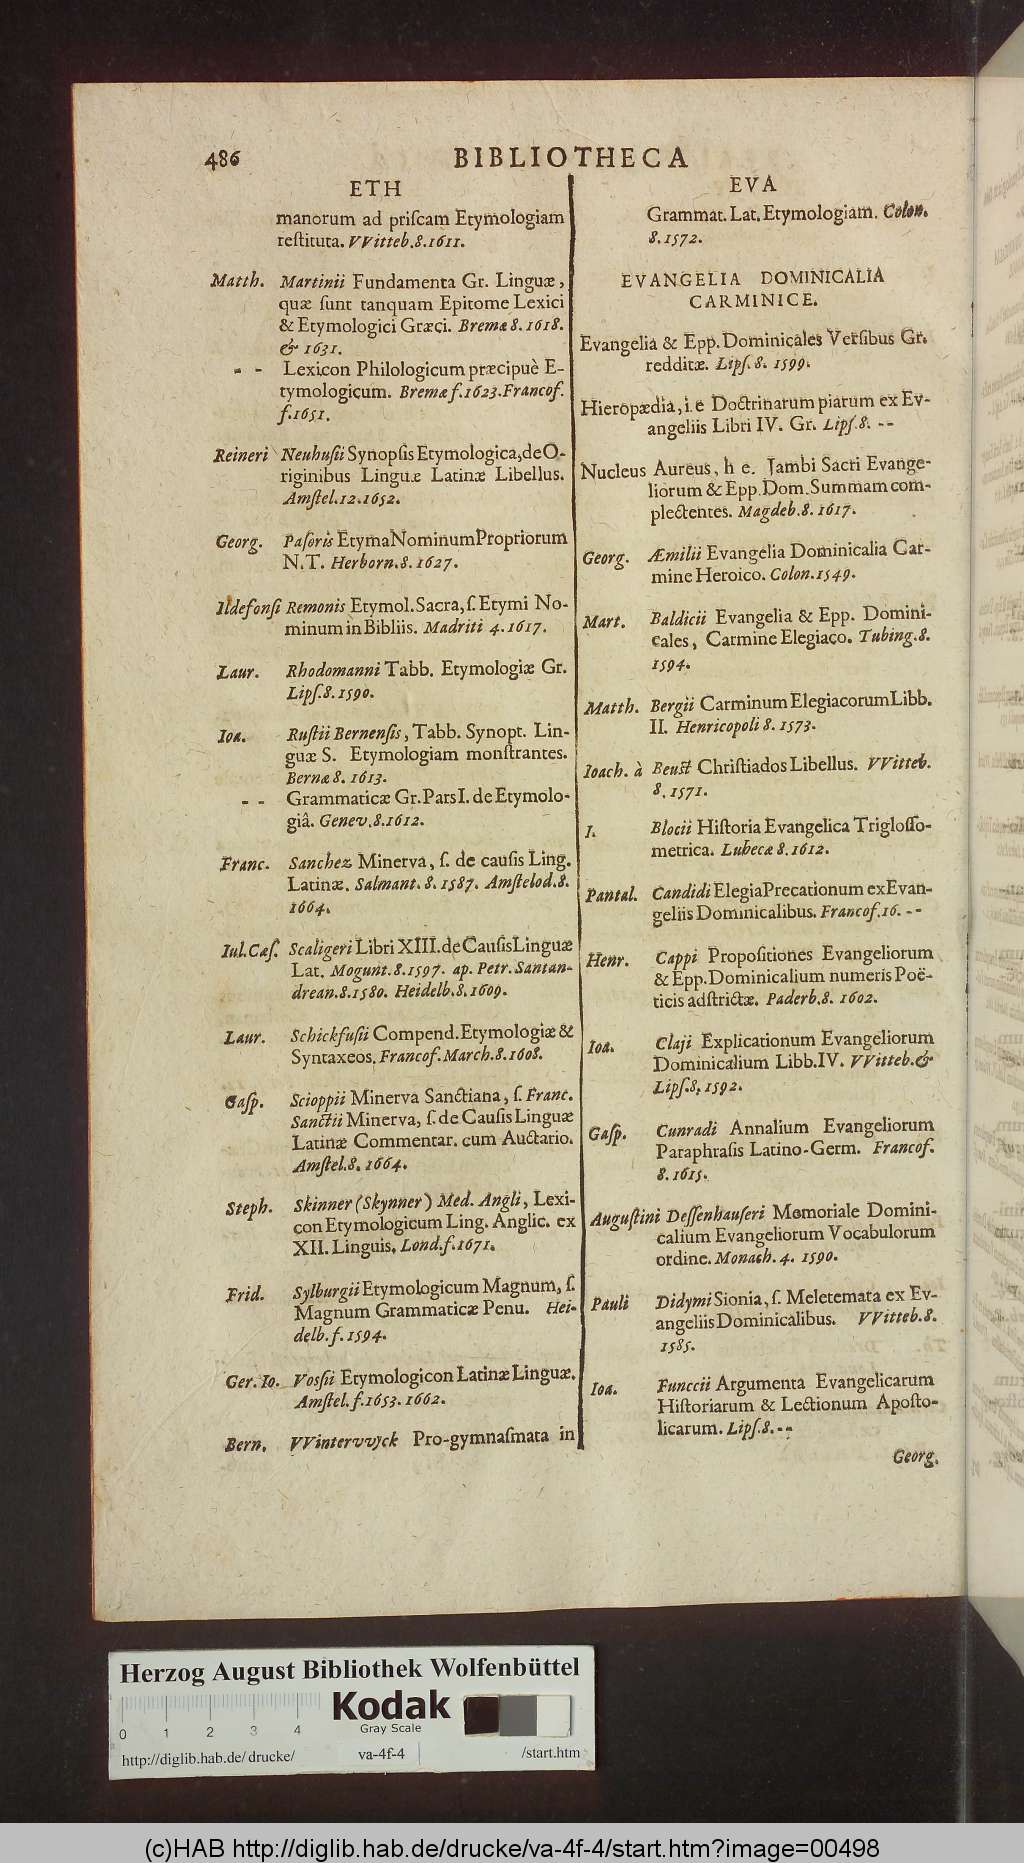 486
BIBLIOTHECA
ETH
manorum ad priſcam Etymologiam
reſtituta. VVitteb. 8. 1611.
Matth. Martinii Fundamenta Gr. Linguæ,
quæ ſunt tanquam Epitome Lexici
& Etymologici Græci. Bremæ 8. 1618.
& 1631.
- - Lexicon Philologicum præcipuè E-
tymologicum. Bremæ f. 1623. Francof.
f. 1651.
Reineri Neuhuſii Synopſis Etymologica, de O-
riginibus Linguæ Latinæ Libellus.
Amſtel. 12. 1652.
Georg. Paſoris Etyma Nominum Propriorum
N. T. Herborn. 8. 1627.
Ildefonſi Remonis Etymol. Sacra, ſ. Etymi No-
minum in Bibliis. Madriti 4. 1617.
Laur. Rhodomanni Tabb. Etymologiæ Gr.
Lipſ. 8. 1590.
Ioa. Ruſtii Bernenſis, Tabb. Synopt. Lin-
guæ S. Etymologiam monſtrantes.
Bernæ 8. 1613.
- - Grammaticæ Gr. Pars I. de Etymolo-
giâ. Genev. 8. 1612.
Franc. Sanchez Minerva, ſ. de cauſis Ling.
Latinæ. Salmant. 8. 1587. Amſtelod. 8.
1664.
Iul. Cæſ. Scaligeri Libri XIII. de Cauſis Linguæ
Lat. Mogunt. 8. 1597. ap. Petr. Santan-
drean. 8. 1580. Heidelb. 8. 1609.
Laur. Schickfuſii Compend. Etymologiæ &
Syntaxeos. Francof. March. 8. 1608.
Gaſp. Scioppii Minerva Sanctiana, ſ. Franc.
Sanctii Minerva, ſ. de Cauſis Linguæ
Latinæ Commentar. cum Auctario.
Amſtel. 8. 1664.
Steph. Skinner (Skynner) Med. Angli, Lexi-
con Etymologicum Ling. Anglic. ex
XII. Linguis. Lond. f. 1671.
Frid. Sylburgii Etymologicum Magnum, ſ.
Magnum Grammaticæ Penu. Hei-
delb. f. 1594.
Ger. Io. Voſſii Etymologicon Latinæ Linguæ.
Amſtel. f. 1653. 1662.
Bern. VVintervvyck Pro-gymnaſmata in
EVA
Grammat. Lat. Etymologiam. Colon.
8. 1572.
EVANGELIA DOMINICALIA
CARMINICE.
Evangelia & Epp. Dominicales Verſibus Gr.
redditæ. Lipſ. 8. 1599.
Hieropædia, i. e Doctrinarum piarum ex Ev-
angeliis Libri IV. Gr. Lipſ. 8. - -
Nucleus Aureus, h e. Jambi Sacri Evange-
liorum & Epp. Dom. Summam com-
plectentes. Magdeb. 8. 1617.
Georg. Æmilii Evangelia Dominicalia Car-
mine Heroico. Colon. 1549.
Mart. Baldicii Evangelia & Epp. Domini-
cales, Carmine Elegiaco. Tubing. 8.
1594.
Matth. Bergii Carminum Elegiacorum Libb.
II. Henricopoli 8. 1573.
Ioach. à Beust Chriſtiados Libellus. VVitteb.
8. 1571.
I. Blocii Hiſtoria Evangelica Trigloſſo-
metrica. Lubecæ 8. 1612.
Pantal. Candidi Elegia Precationum ex Evan-
geliis Dominicalibus. Francof. 16. - -
Henr. Cappi Propoſitiones Evangeliorum
& Epp. Dominicalium numeris Poë-
ticis adſtrictæ. Paderb. 8. 1602.
Ioa. Claji Explicationum Evangeliorum
Dominicalium Libb. IV. VVitteb. &
Lipſ. 8. 1592.
Gaſp. Cunradi Annalium Evangeliorum
Paraphraſis Latino-Germ. Francof.
8. 1615.
Auguſtini Deſſenhauſeri Memoriale Domini-
calium Evangeliorum Vocabulorum
ordine. Monach. 4. 1590.
Pauli Didymi Sionia, ſ. Meletemata ex Ev-
angeliis Dominicalibus. VVitteb. 8.
1585.
Ioa. Funccii Argumenta Evangelicarum
Hiſtoriarum & Lectionum Apoſto-
licarum. Lipſ. 8. - -
Georg.
Herzog August Bibliothek Wolfenbüttel
Kodak
Gray Scale
0 1 2 3 4
http://diglib.hab.de/drucke/ va-4f-4 /start.htm
(c)HAB http://diglib.hab.de/drucke/va-4f-4/start.htm?image=00498